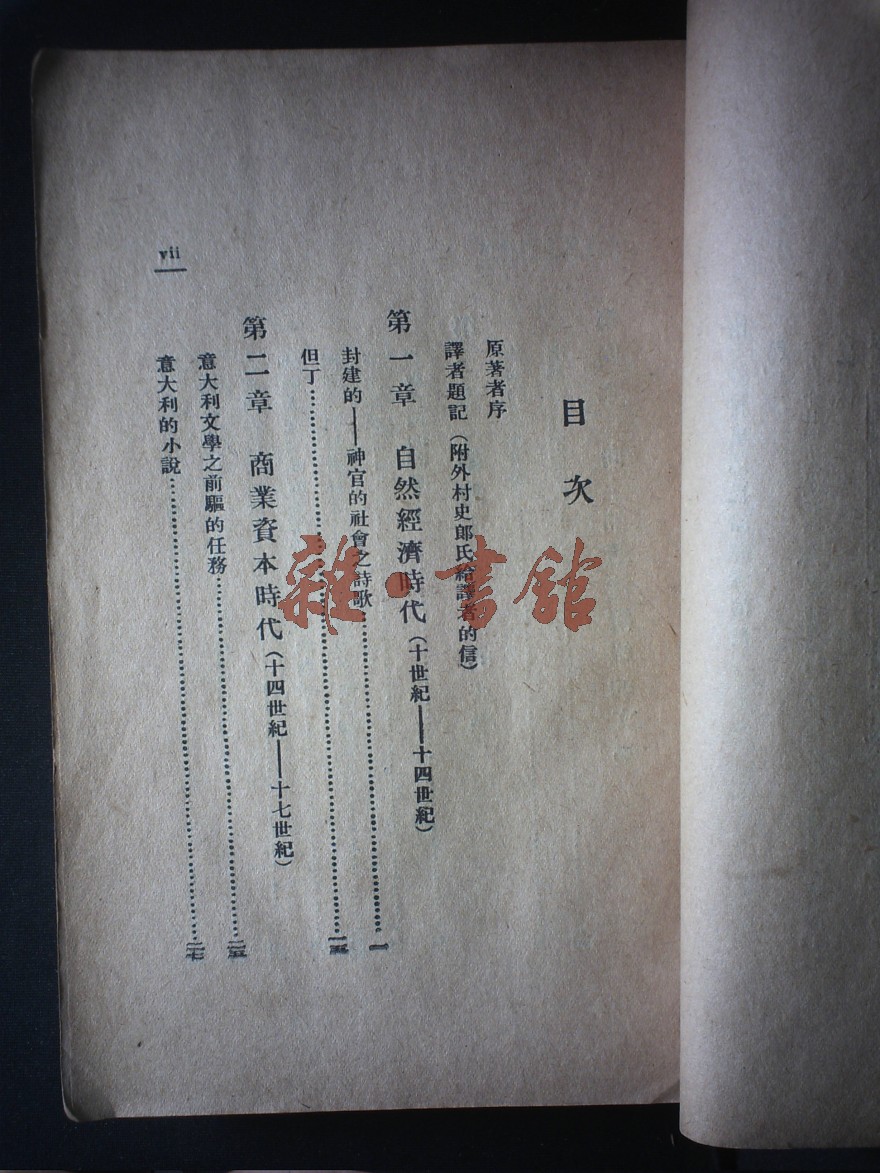 目次
原著者序
譯者題記(附外村史郎氏給譯者的信)
第一章 自然經濟時代(十世紀——十四世紀)
封建的——神官的社會之詩歌……一
但丁……一五
第二章 商業資本時代(十四世紀——十七世紀)
意大利文學之前驅的任務……二五
意大利的小說……二七
vii
雜·書館